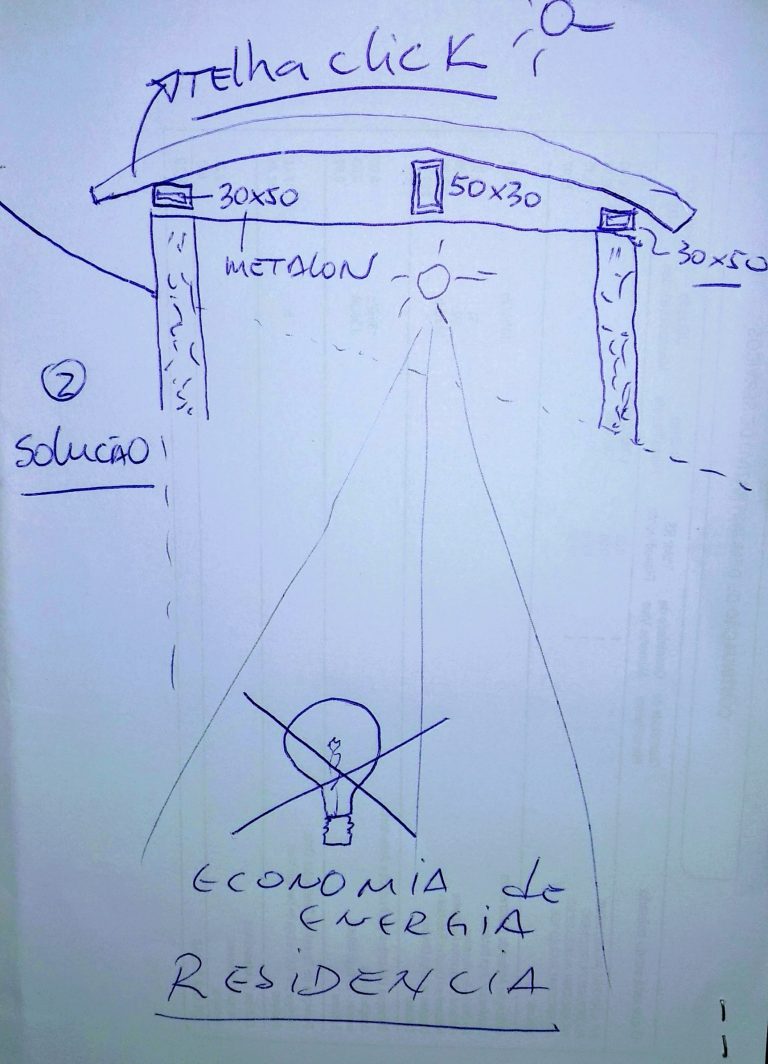 TElha click
30x50
50x30
METALON
30x50
2
SOLUCÃO
ECONOMIA de
ENERGIA
RESIDENCIA